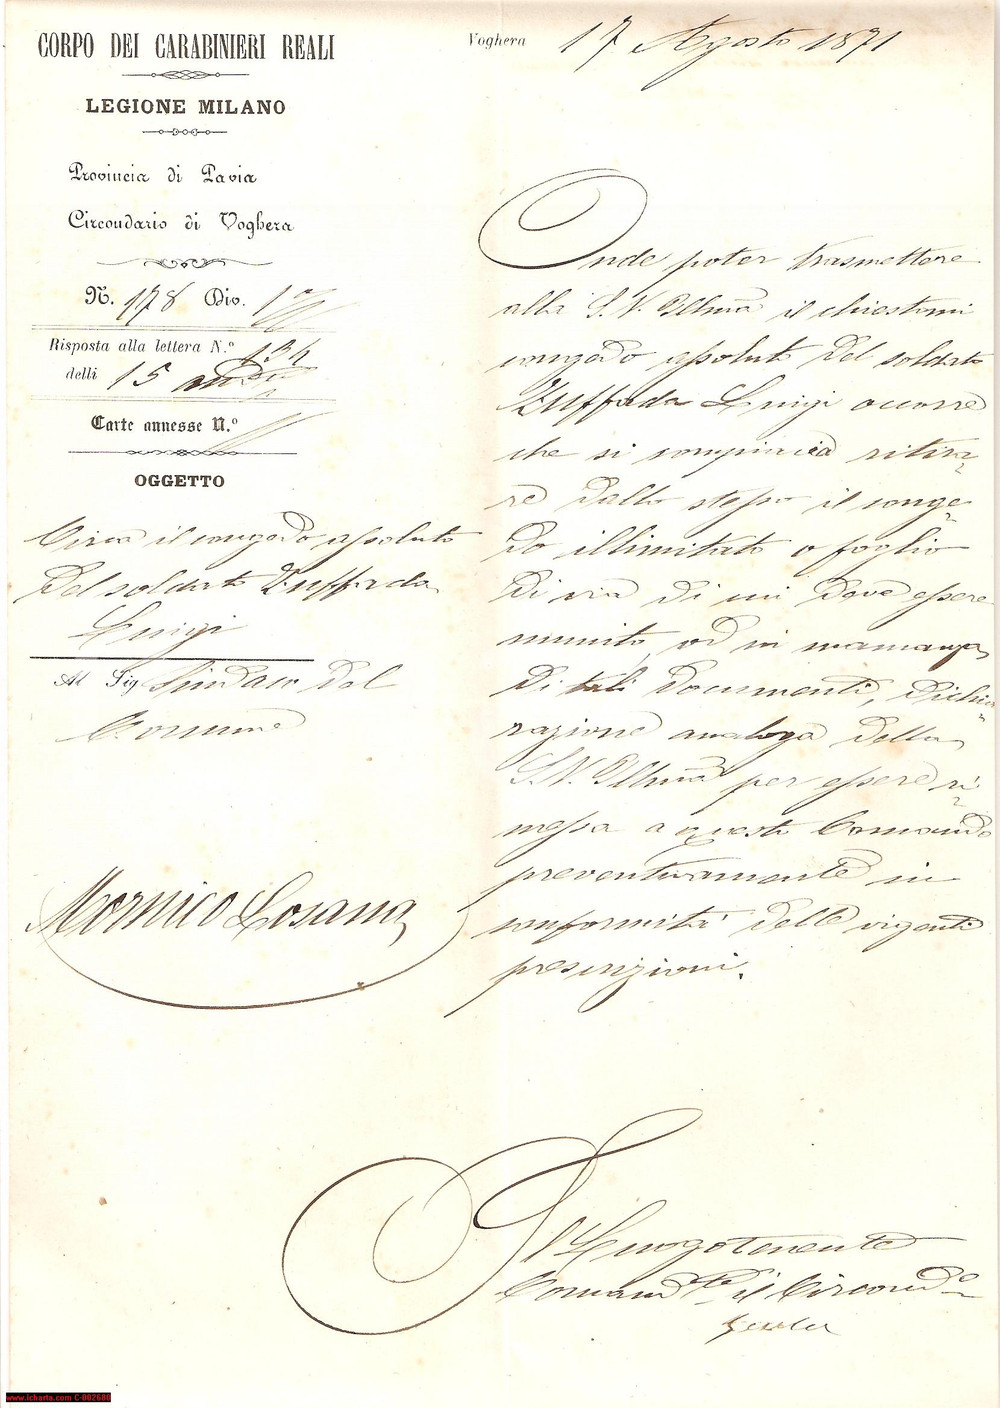 CORPO DEI CARABINIERI REALI
LEGIONE MILANO
Provincia di Pavia
Circondario di Voghera
N. 178 Div. 1ª
Risposta alla lettera N.º 134
delli 15 and.te
Carte annesse N.º
OGGETTO
Circa il congedo assoluto
del soldato Zuffada
Luigi
Al Sig. Sindaco del
Comune
Mornico Losana
Voghera 17 Agosto 1871
Onde poter trasmettere
alla S.V. Illma il chiestomi
congedo assoluto del soldato
Zuffada Luigi occorre
che si compiacia ritira-
re dallo stesso il conge-
do illimitato o foglio
di via di cui deve essere
munito, od in mancanza
di tali documenti, dichia-
razione analoga della
S.V. Illma per essere ri-
messa a questo Comando
preventivamente in
conformità delle vigenti
prescrizioni.
Il Luogotenente
Comand.te il Circond.o
www.icharta.com C-002600